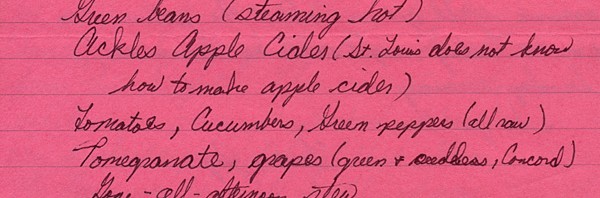 Green beans (steaming hot)
Ackles Apple Cider (St. Louis does not know
how to make apple cider)
Tomatoes, Cucumbers, Green peppers (all raw)
Pomegranate, grapes (green & seedless, Concord)
Gone-all-afternoon stew